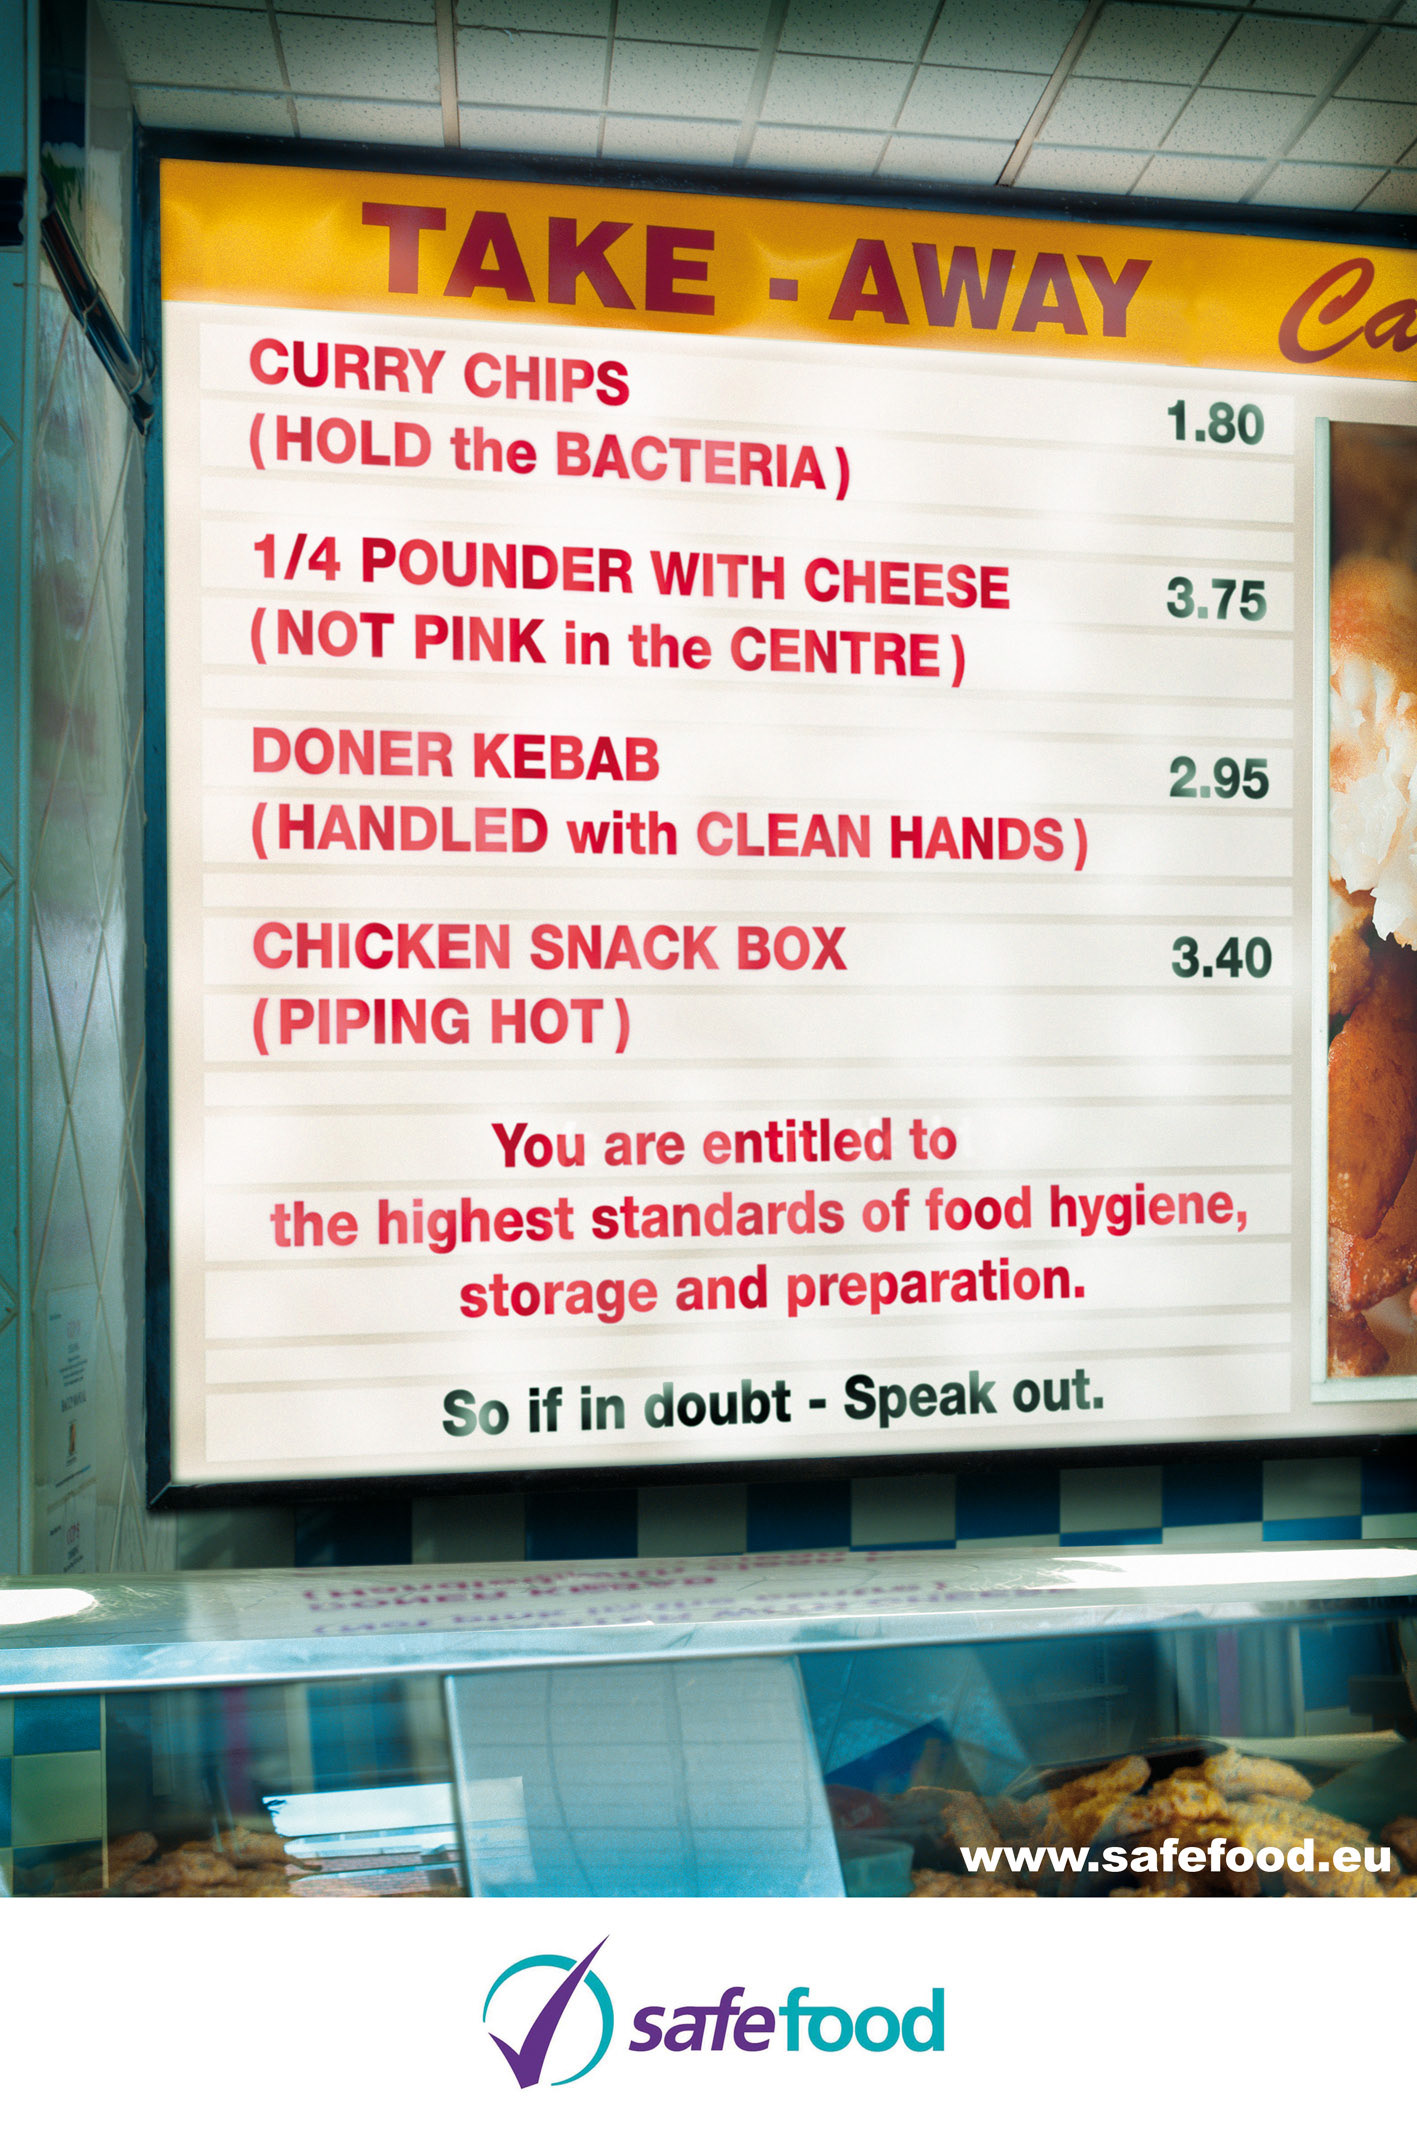 TAKE - AWAY
Ca
CURRY CHIPS 1.80
(HOLD the BACTERIA)
1/4 POUNDER WITH CHEESE 3.75
(NOT PINK in the CENTRE)
DONER KEBAB 2.95
(HANDLED with CLEAN HANDS)
CHICKEN SNACK BOX 3.40
(PIPING HOT)
You are entitled to
the highest standards of food hygiene,
storage and preparation.
So if in doubt - Speak out.
www.safefood.eu
safefood